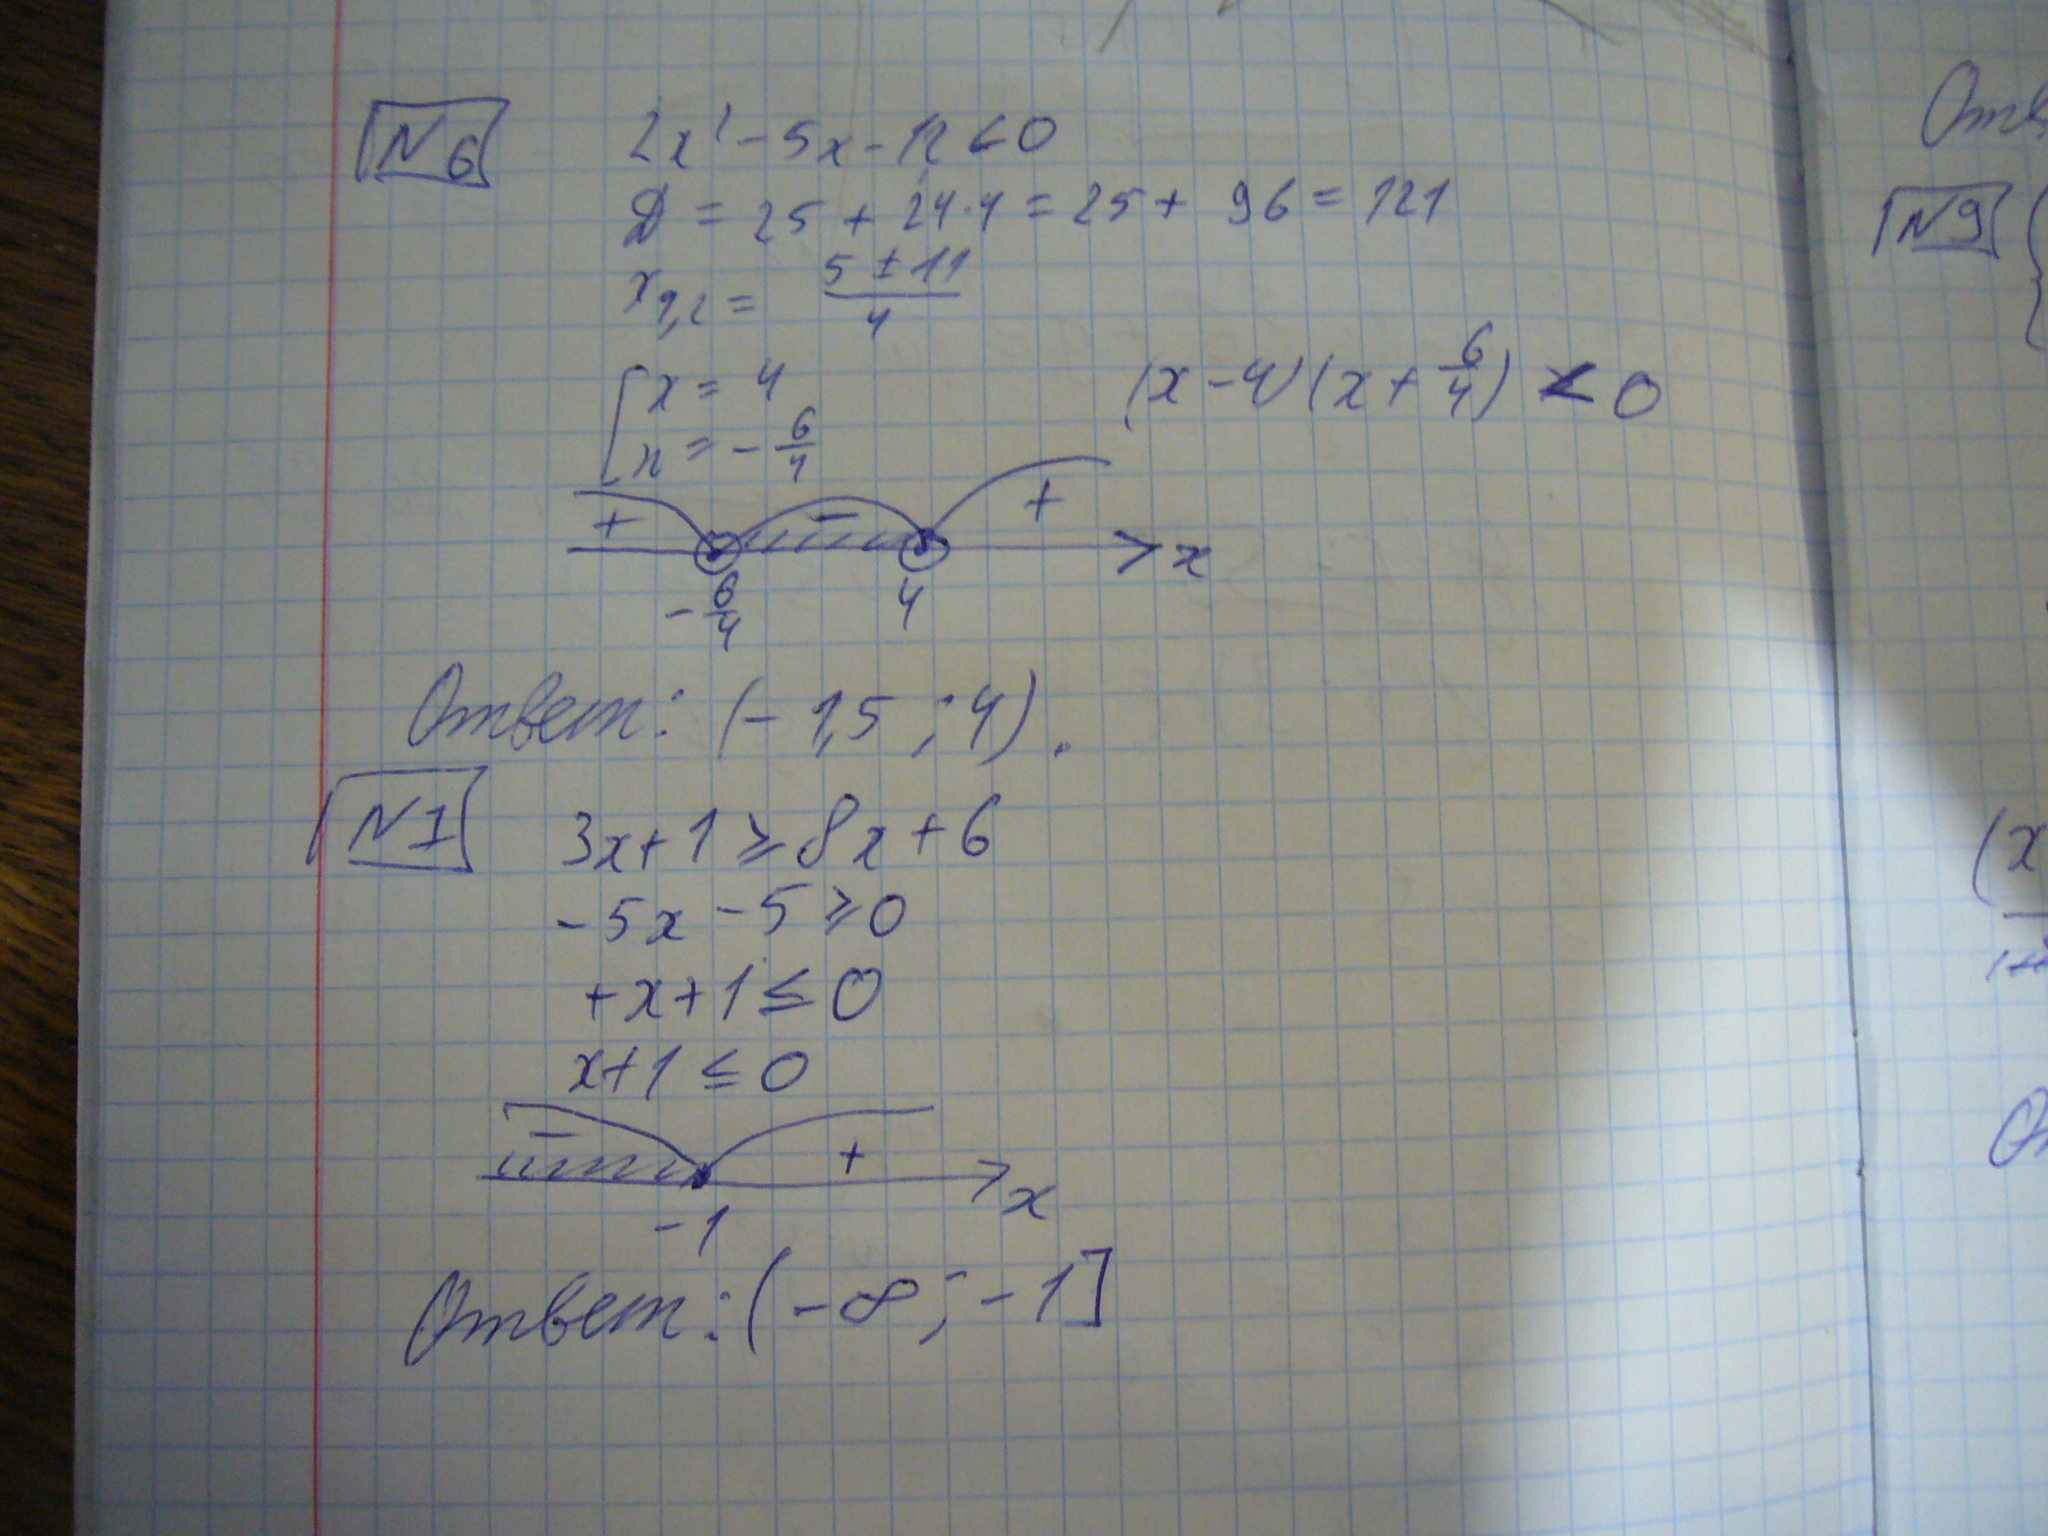 N6 2x² - 5x - 12 < 0
D = 25 + 24·4 = 25 + 96 = 121
x₁,₂ = (5 ± 11)/4
[ x = 4
x = -6/4
(x - 4)(x + 6/4) < 0
+ - + x
-6/4 4
Ответ: (-1,5 ; 4).
N1 3x + 1 ≥ 8x + 6
-5x - 5 ≥ 0
+x + 1 ≤ 0
x + 1 ≤ 0
- + x
-1
Ответ: (-∞; -1]
N9 {
(x